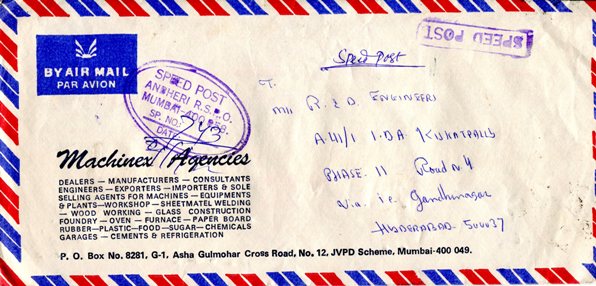 BY AIR MAIL
PAR AVION
SPEED POST
Speed Post
SPEED POST
ANDHERI R.S. P.O.
MUMBAI-400
SP. NO.
DATE
Machinex Agencies
DEALERS — MANUFACTURERS — CONSULTANTS
ENGINEERS — EXPORTERS — IMPORTERS & SOLE
SELLING AGENTS FOR MACHINES — EQUIPMENTS
& PLANTS—WORKSHOP — SHEETMATEL WELDING
— WOOD WORKING — GLASS CONSTRUCTION
FOUNDRY — OVEN — FURNACE — PAPER BOARD
RUBBER—PLASTIC—FOOD—SUGAR—CHEMICALS
GARAGES — CEMENTS & REFRIGERATION
P. O. Box No. 8281, G-1, Asha Gulmohar Cross Road, No. 12, JVPD Scheme, Mumbai-400 049.
T.
M/s R. & D. ENGINEERS
A 41/1 I.D.A KUKATPALLY
PHASE. II Road n. 4
i.e. Gandhinagar
HYDERABAD- 500037